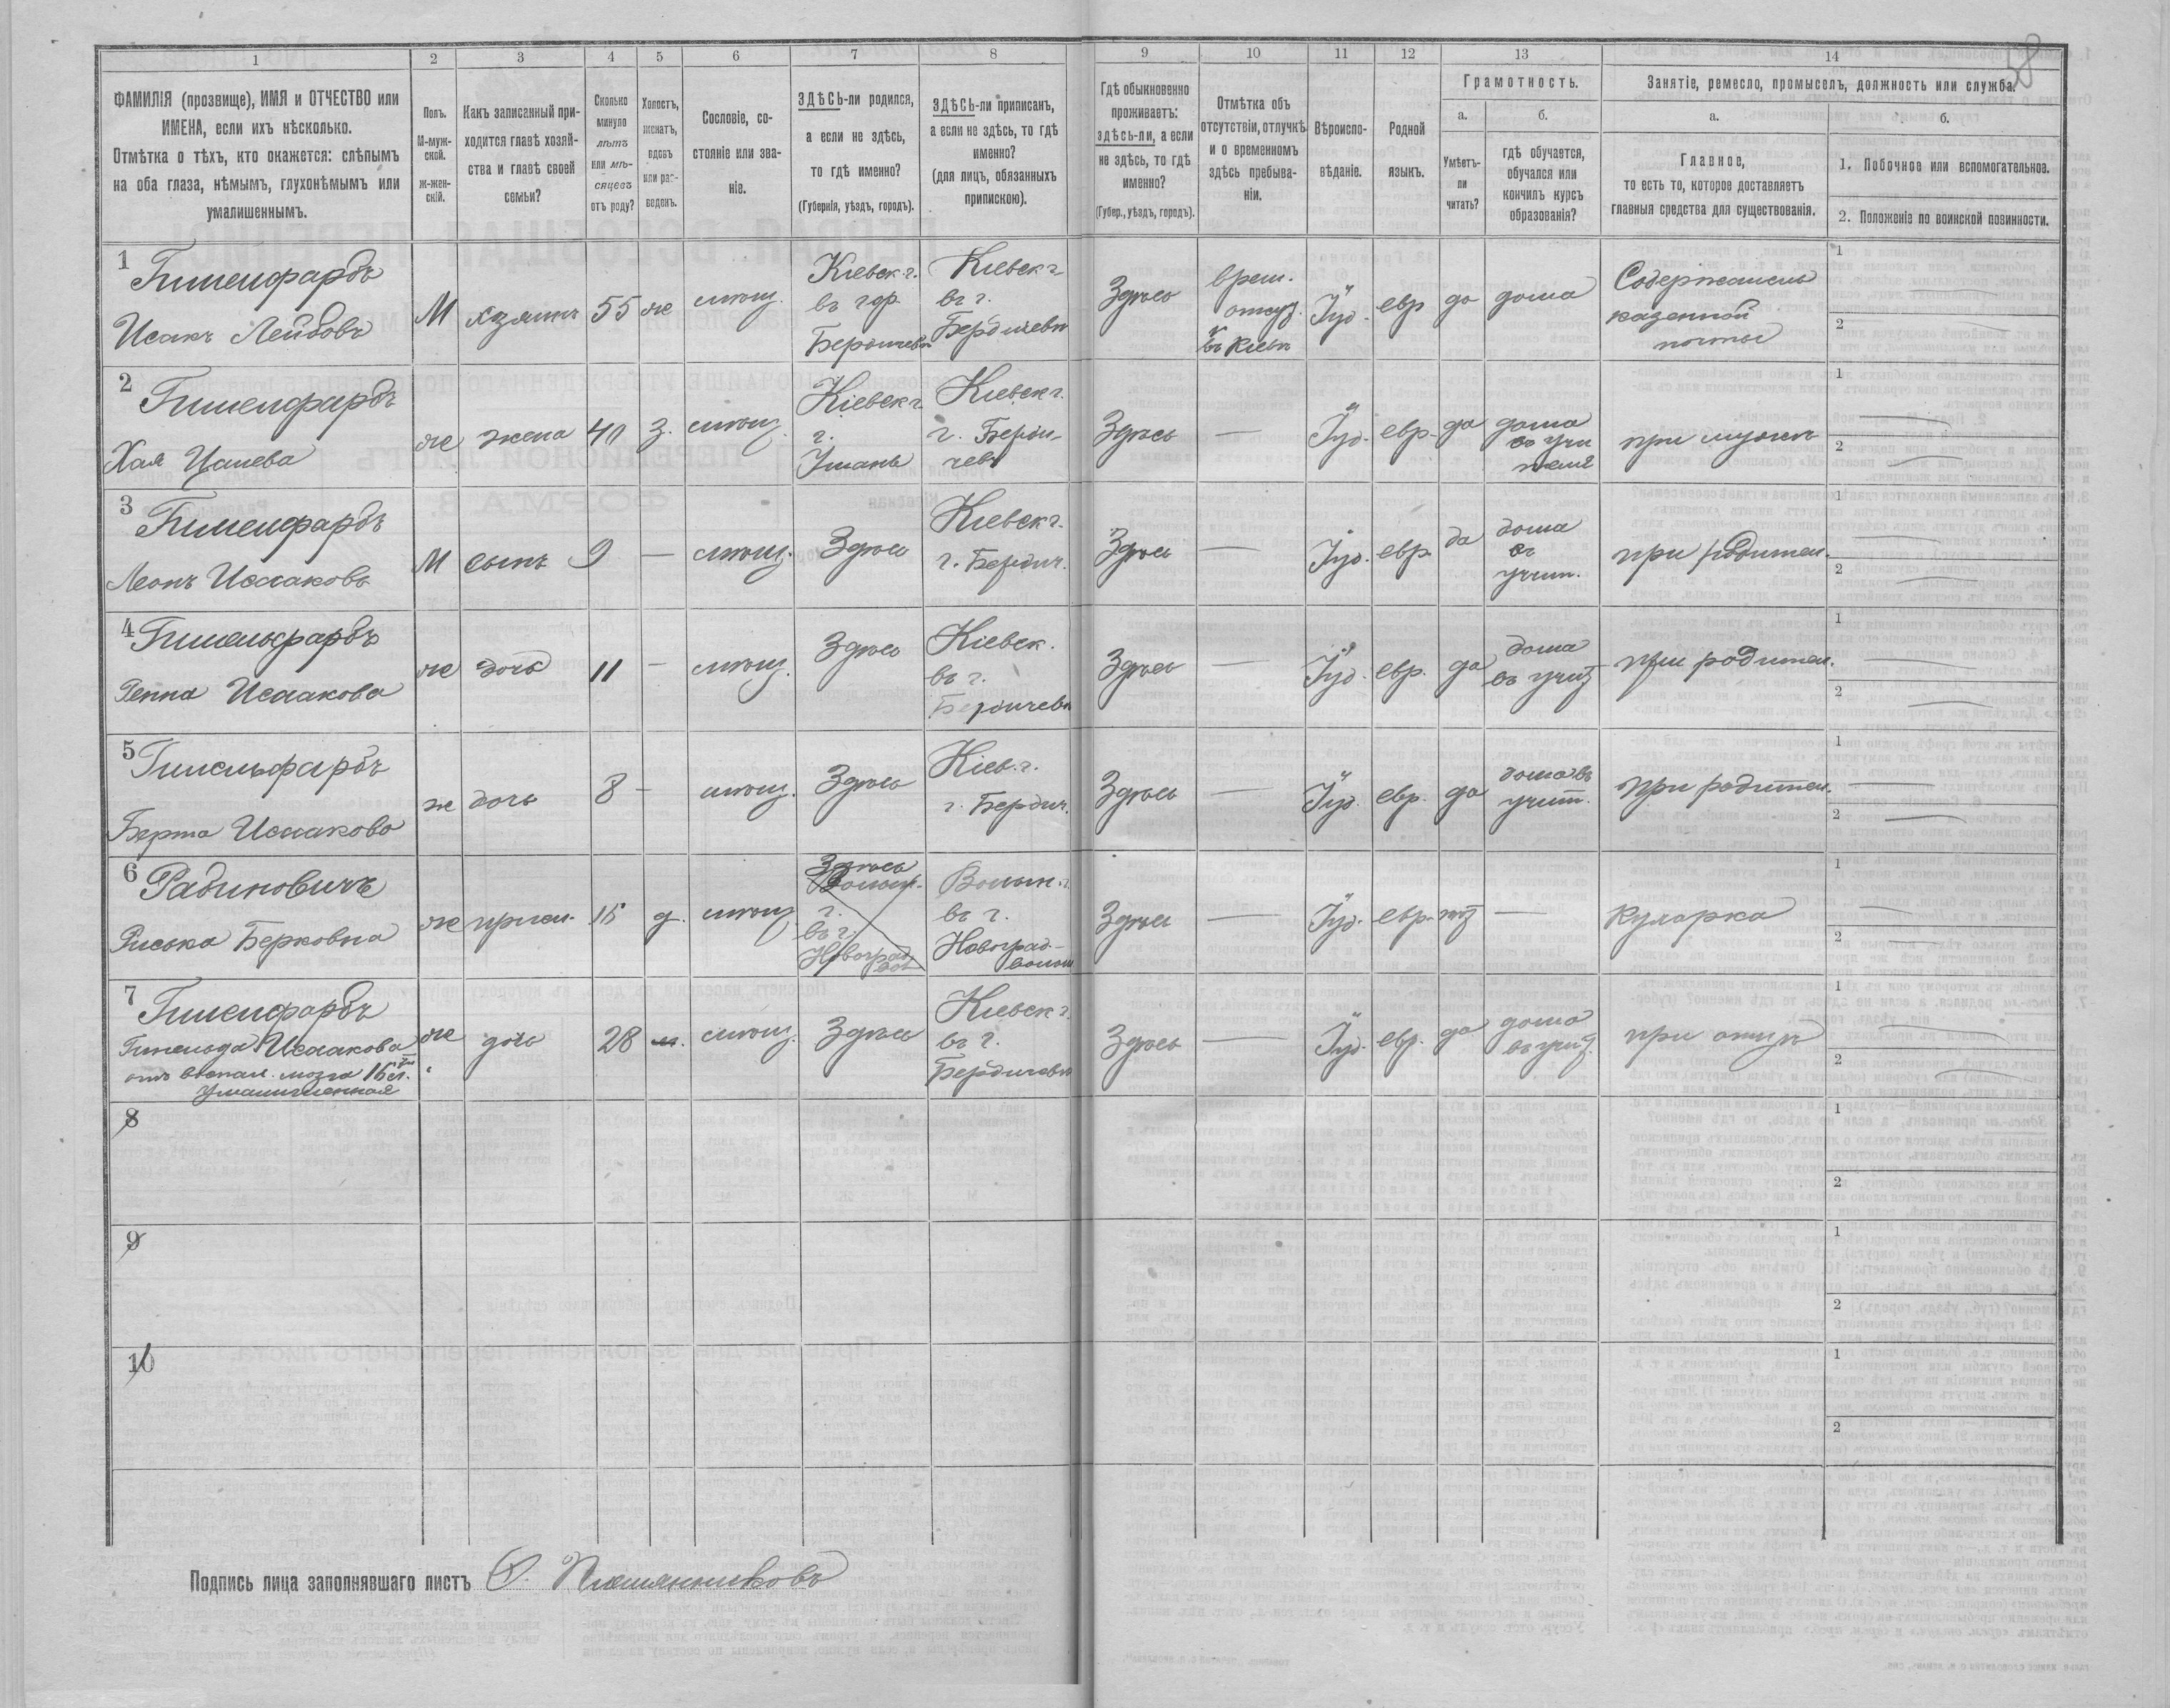 58
1 2 3 4 5 6 7 8 9 10 11 12 13 14
ФАМИЛІЯ (прозвище), ИМЯ и ОТЧЕСТВО или
ИМЕНА, если ихъ нѣсколько.
Отмѣтка о тѣхъ, кто окажется: слѣпымъ
на оба глаза, нѣмымъ, глухонѣмымъ или
умалишеннымъ.
Полъ.
М-муж-
ской.
Ж-жен-
скій.
Какъ записанный при-
ходится главѣ хозяй-
ства и главѣ своей
семьи?
Сколько
минуло
лѣтъ
или мѣ-
сяцевъ
отъ роду?
Холостъ,
женатъ,
вдовъ
или раз-
веденъ.
Сословіе, со-
стояніе или зва-
ніе.
ЗДѢСЬ-ли родился,
а если не здѣсь,
то гдѣ именно?
(Губернія, уѣздъ, городъ).
ЗДѢСЬ-ли приписанъ,
а если не здѣсь, то гдѣ
именно?
(для лицъ, обязанныхъ
припискою).
Гдѣ обыкновенно
проживаетъ:
здѣсь-ли, а если
не здѣсь, то гдѣ
именно?
(Губер., уѣздъ, городъ).
Отмѣтка объ
отсутствіи, отлучкѣ
и о временномъ
здѣсь пребыва-
ніи.
Вѣроиспо-
вѣданіе.
Родной
языкъ.
Грамотность.
а.
Умѣетъ-
ли
читать?
б.
гдѣ обучается,
обучался или
кончилъ курсъ
образованія?
Занятіе, ремесло, промыселъ, должность или служба.
а.
Главное,
то есть то, которое доставляетъ
главныя средства для существованія.
б.
1. Побочное или вспомогательное.
2. Положеніе по воинской повинности.
1
Гимелфарбъ
Исакъ Лейбовъ
М хозяинъ 55 же мѣщ.
Кіевск. г.
въ гор.
Бердичевѣ
Кіевск г
въ г.
Бердичевѣ
Здѣсь
врем.
отлуч.
въ Кіевъ
Іуд. евр да дома
Содержатель
казенной
почты
1
2
2
Гимелфарбъ
Хая
же жена 40 з. мѣщ.
Кіевск г.
г.
Умань
Кіевск г.
г. Берди-
чевъ
Здѣсь — Іуд. евр. да
дома
при мужѣ
1
2
3
Гимелфарбъ
Леонъ Исааковъ
М сынъ 9 — мѣщ. Здѣсь
Кіевск г.
г. Бердич.
Здѣсь — Іуд. евр. да
дома
въ
учит.
при родител.
1
2
4
Гимельфарбъ
Генна Исаакова
же дочь 11 — мѣщ. Здѣсь
Кіевск.
въ г.
Бердичевѣ
Здѣсь — Іуд. евр. да
дома
при родител.
1
2
5
Гимельфарбъ
Берта Исаакова
ж дочь 8 — мѣщ. Здѣсь
Кіев. г.
г. Бердич.
Здѣсь — Іуд. евр. да
дома въ
учит.
при родител.
1
2
6
Рабиновичъ
Риська Берковна
же 15 д. мѣщ.
Здѣсь
Волын.
г.
въ г.
Новоград
Вол
Волын. г.
въ г.
Новоград-
волын
Здѣсь — Іуд. евр. —
Кухарка
1
2
7
Гимелфарбъ
Исаакова
отъ воспал. мозга
Умалишенная
же дочь 28 мѣщ. Здѣсь
Кіевск г.
въ г.
Бердичевѣ
Здѣсь — Іуд. евр. да
дома
при отцѣ
1
2
8
1
2
9
1
2
10
1
2
Подпись лица заполнявшаго листъ